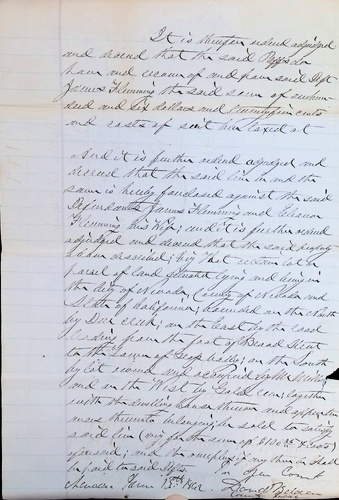 It is therefore ordered adjudged
and decreed that the said Plffs do
have and recover of and from said Deft
James Flemming the said sum of
and six dollars and cents
and costs of suit here taxed at
And it is further ordered adjudged and
decreed that the said lien in and the
same is hereby foreclosed against the said
Defendants James Flemming and
Flemming his wife; and it is further ordered
adjudged and decreed that the said property
to be described; by That certain lot or
parcel of land situate lying and being in
the City of Nevada, County of Nevada and
State of California; bounded on the North
by Deer creek; on the East by the road
leading from the foot of Broad Street
to the town of Grass Valley; on the South
by lot owned and occupied by Mr
and on the West by Gold run; together
with the dwelling house thereon and appurten
ances thereunto belonging be sold to satisfy
said lien for the sum of
aforesaid; and the overplus if any there be shall
be paid to said Defts.
In open Court
13th
David Belden